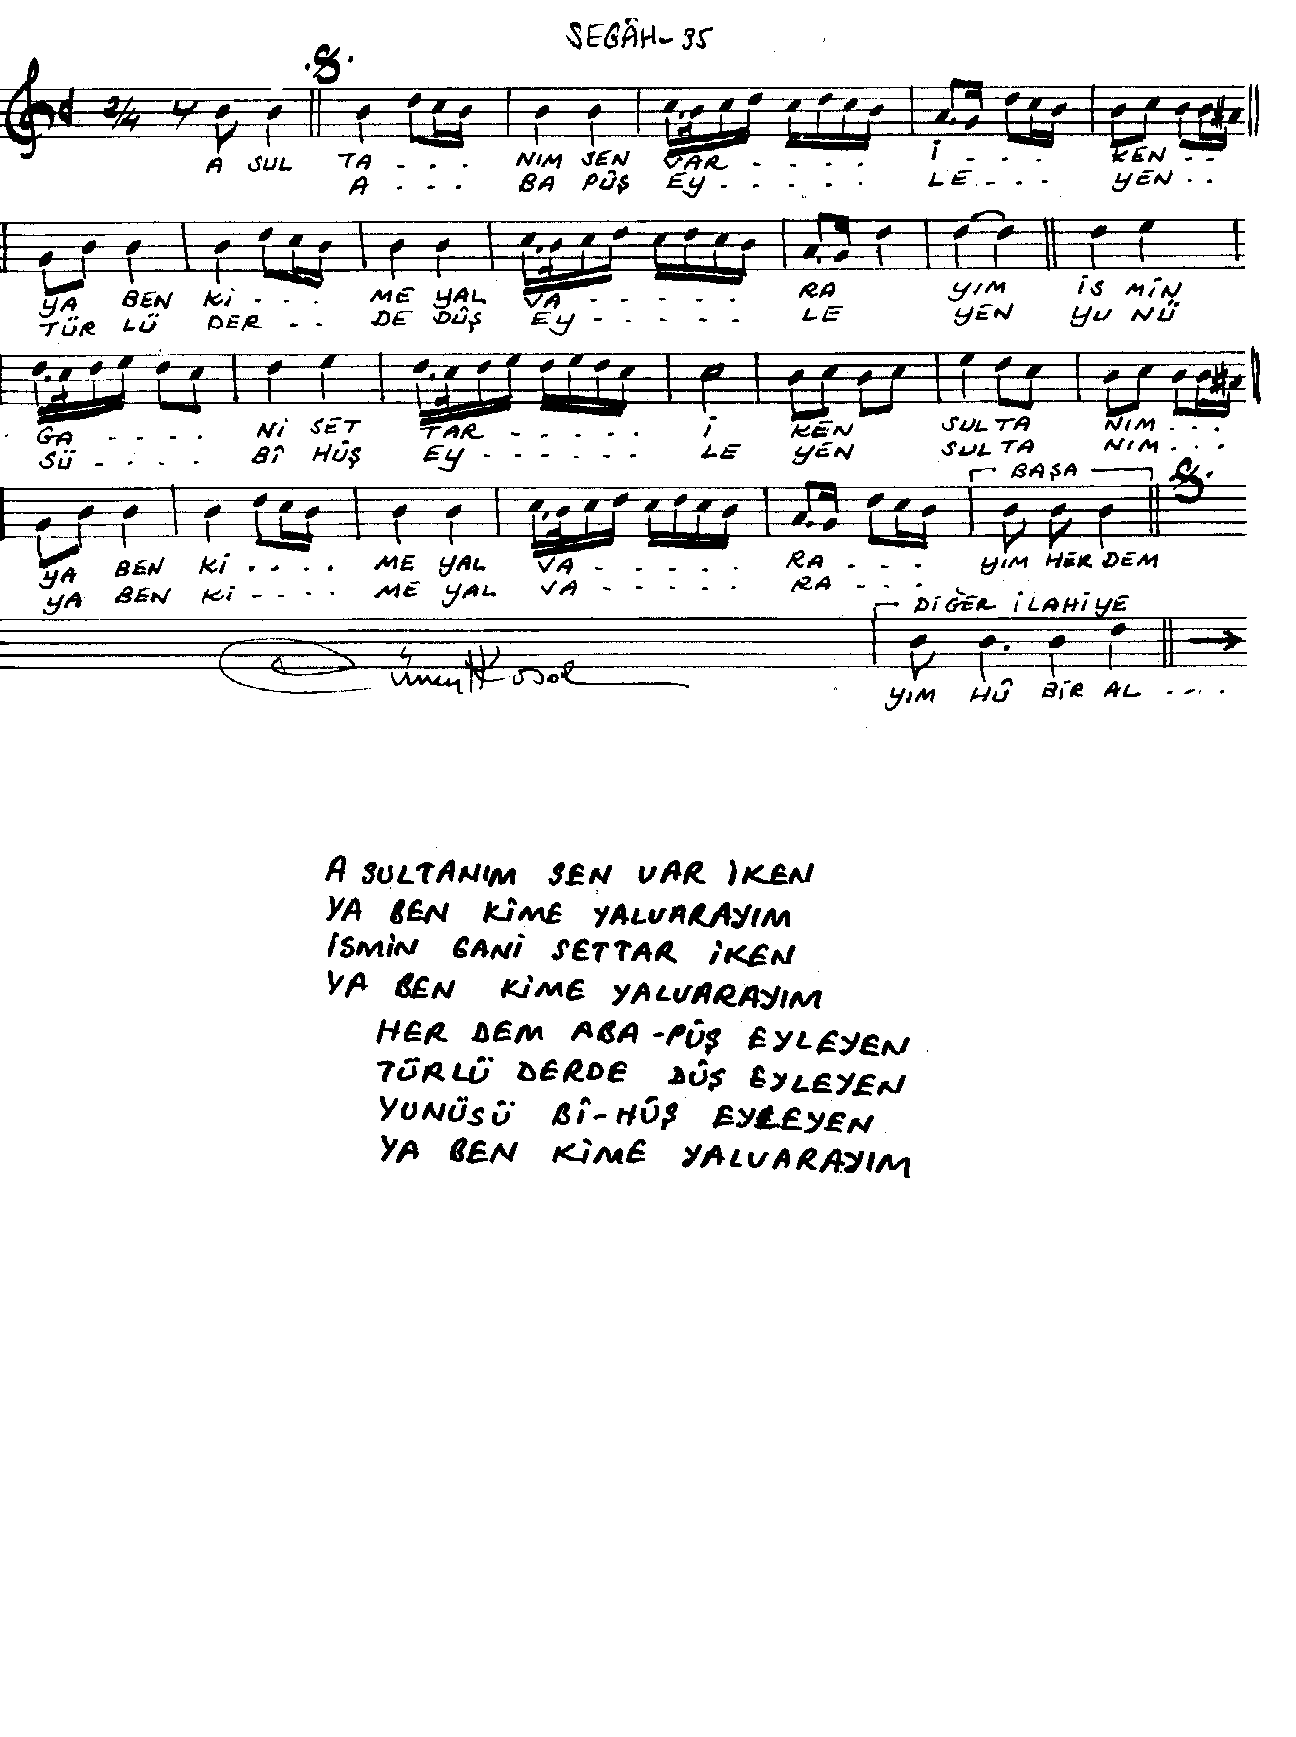 SEGÂH-35
2/4
A SUL TA - - - NIM SEN VAR - - - - İ - - - KEN - -
A - - - BA PÛŞ EY - - - - - LE - - - YEN - -
YA BEN Kİ - - - ME YAL VA - - - - - RA YIM İS MİN
TÜR LÜ DER - - DE DÛŞ EY - - - - - LE YEN YU NÜ
GA - - - - Nİ SET TAR - - - - - İ KEN SUL TA NIM - - -
SÜ - - - - BÎ HÛŞ EY - - - - - - LE YEN SUL TA NIM - - -
BAŞA
YA BEN Kİ - - - - ME YAL VA - - - - - RA - - - YIM HER DEM
YA BEN Kİ - - - - ME YAL VA - - - - - RA - - -
DİĞER İLAHİYE
YIM HÛ BİR AL - - - -
A SULTANIM SEN VAR İKEN
YA BEN KİME YALVARAYIM
İSMİN GANİ SETTAR İKEN
YA BEN KİME YALVARAYIM
HER DEM ABA-PÛŞ EYLEYEN
TÜRLÜ DERDE DÛŞ EYLEYEN
YUNÜSÜ BÎ-HÛŞ EYLEYEN
YA BEN KİME YALVARAYIM